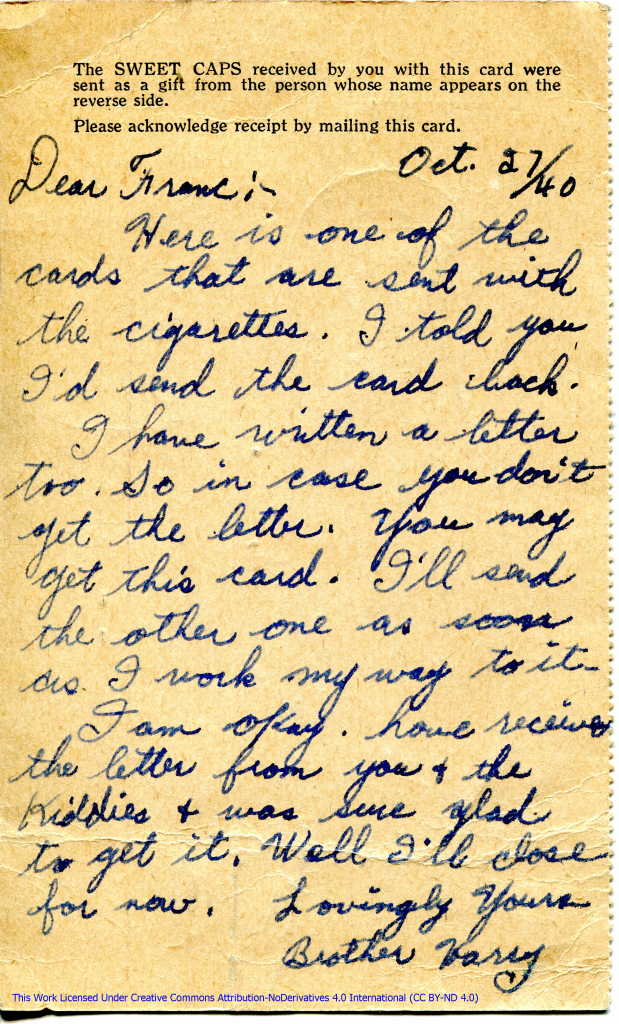 The SWEET CAPS received by you with this card were
sent as a gift from the person whose name appears on the
reverse side.
Please acknowledge receipt by mailing this card.
Oct. 27/40
Dear Franc;-
Here is one of the
cards that are sent with
the cigarettes. I told you
I'd send the card back.
I have written a letter
too. So in case you don't
get the letter. You may
get this card. I'll send
the other one as soon
as I work my way to it
I am okay. have receive
the letter from you & the
Kiddies & was sure glad
to get it. Well I'll close
for now. Lovingly Yours
Brother Harry
This Work Licensed Under Creative Commons Attribution-NoDerivatives 4.0 International (CC BY-ND 4.0)